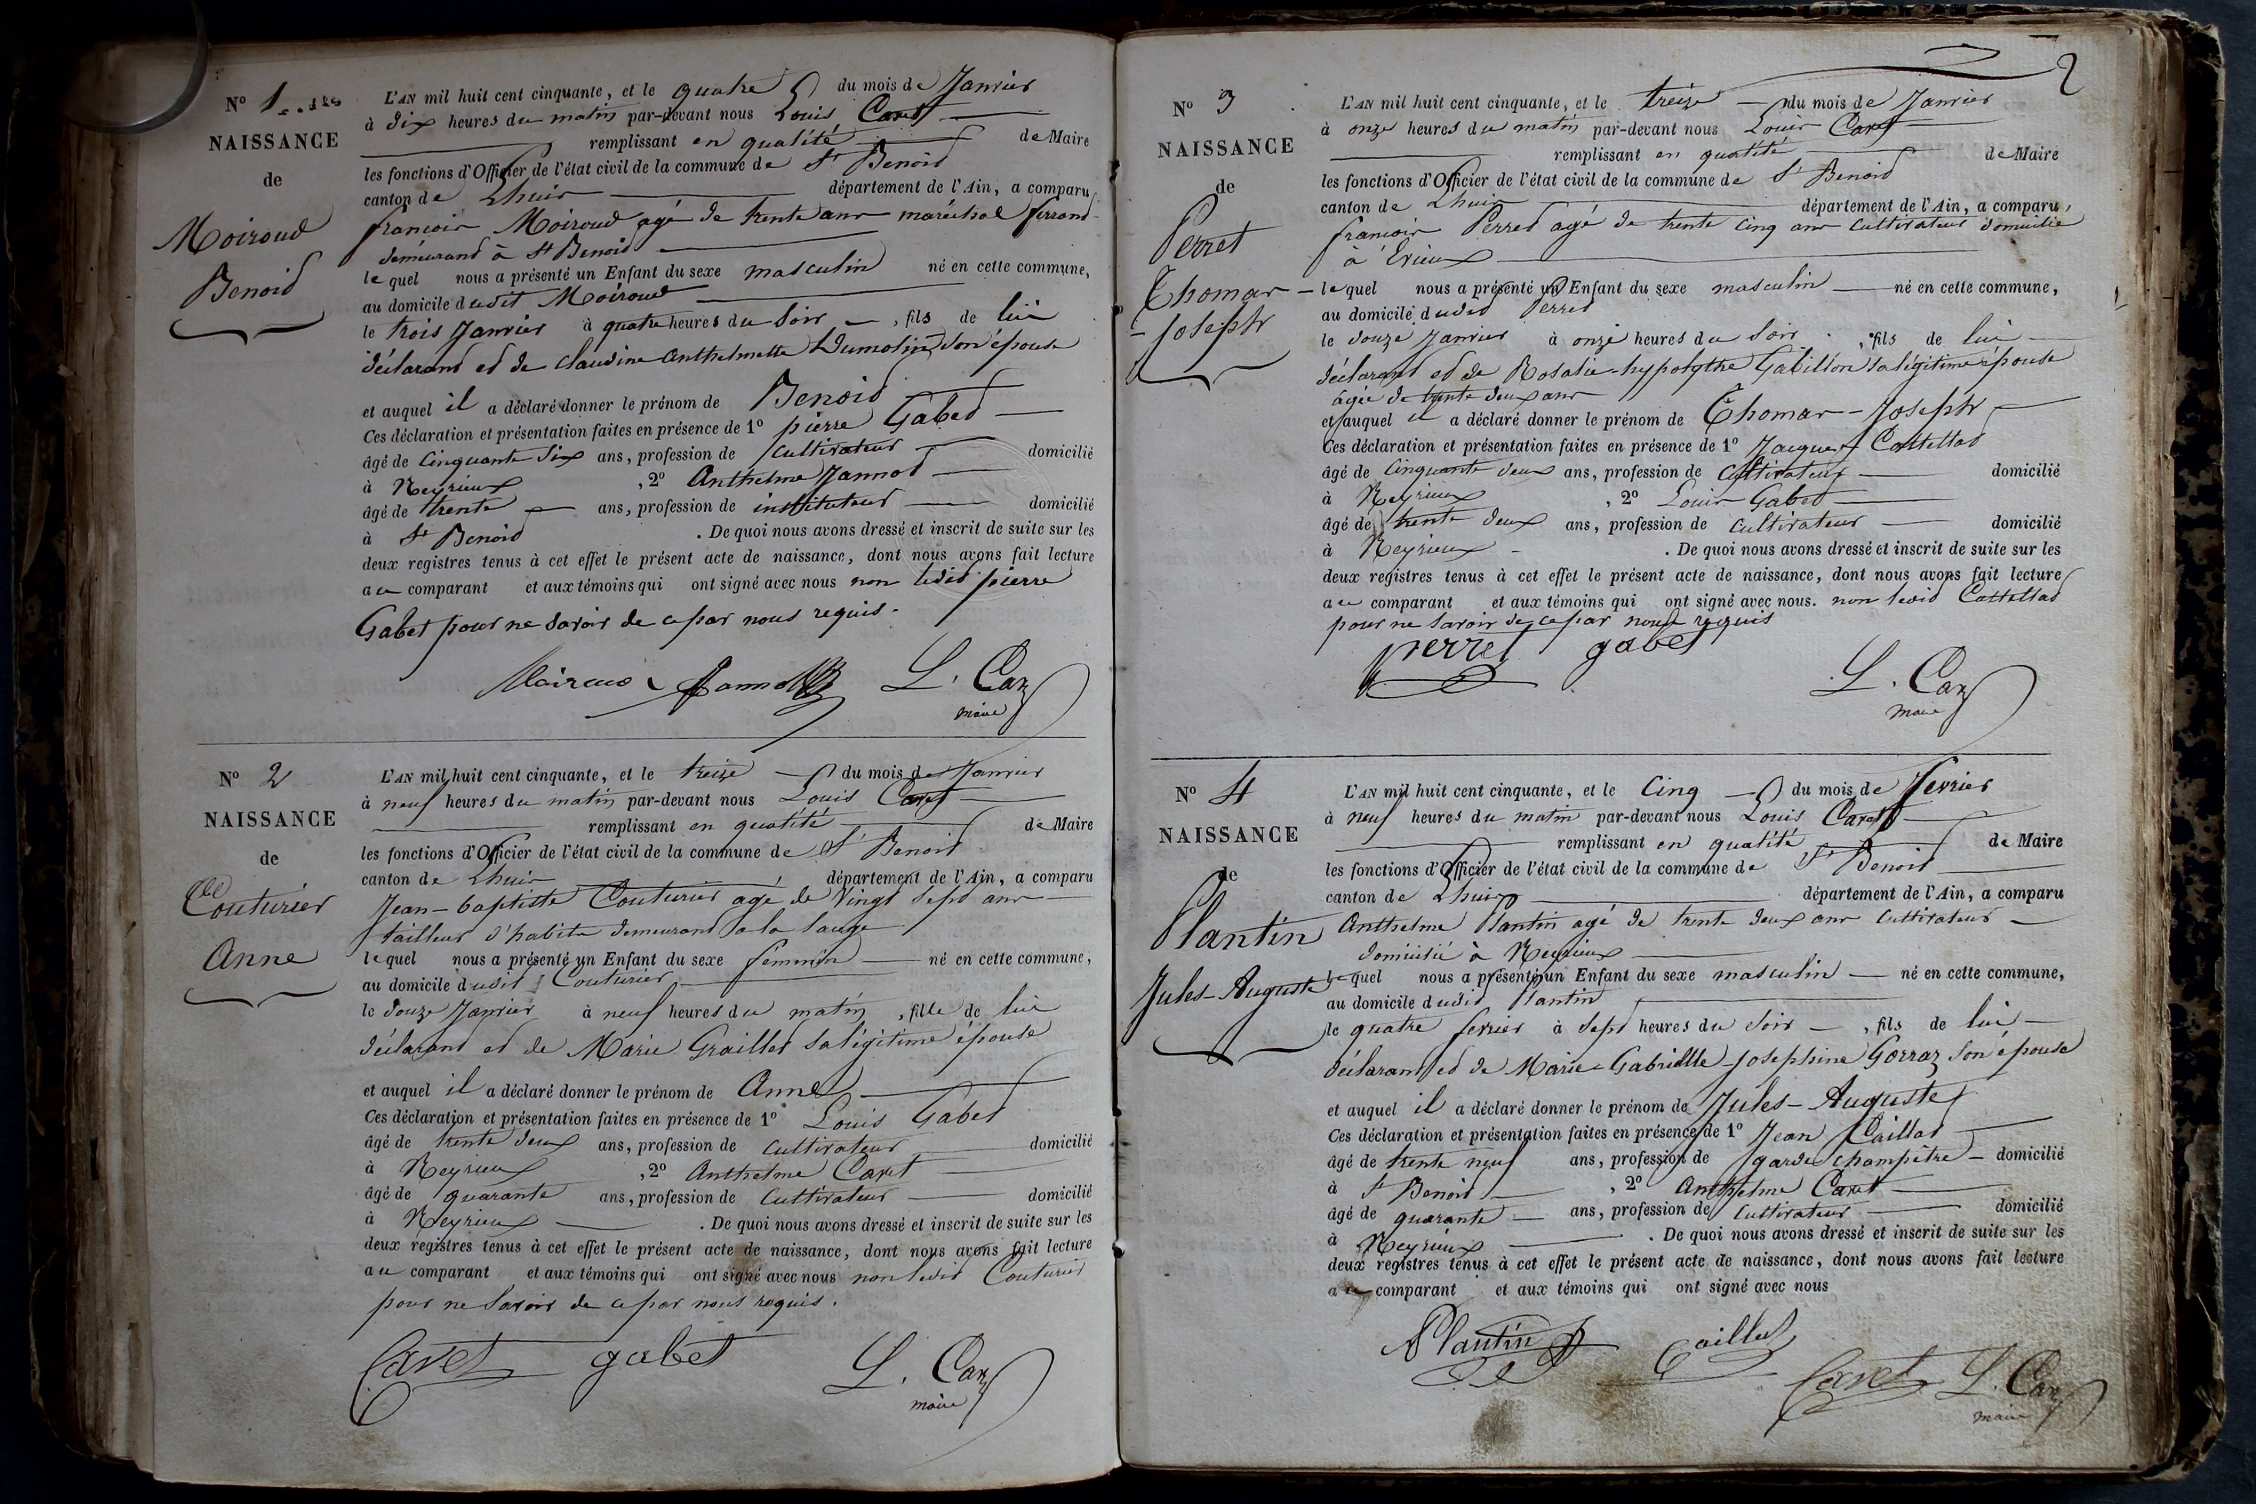 N° 1
NAISSANCE
de
Moiroud
Benoid
L'AN mil huit cent cinquante, et le quatre du mois de Janvier
à dix heures du matin par-devant nous Louis Caret
remplissant en qualité de Maire
les fonctions d'Officier de l'état civil de la commune de St Benoid
canton de Lhuis département de l'Ain, a comparu
françois Moiroud agé de trente ans maréchal ferrand
demeurand à St Benoid
le quel nous a présenté un Enfant du sexe masculin né en cette commune,
au domicile dudit Moiroud
le trois Janvier à quatre heures du Soir, fils de lui
déclarand ed de Claudine anthelmette Dumolin Son épouse
et auquel il a déclaré donner le prénom de Benoid
Ces déclaration et présentation faites en présence de 1° pierre Gabed
âgé de Cinquante Six ans, profession de Cultivateur domicilié
à Neyrieux, 2° Anthelme Jannod
âgé de trente ans, profession de instituteur domicilié
à St Benoid. De quoi nous avons dressé et inscrit de suite sur les
deux registres tenus à cet effet le présent acte de naissance, dont nous avons fait lecture
au comparant et aux témoins qui ont signé avec nous non ledid pierre
Gabet pour ne Savoir de ce par nous requis.
L. Caret
maire
N° 2
NAISSANCE
de
Couturier
Anne
L'AN mil huit cent cinquante, et le treize du mois de Janvier
à neuf heures du matin par-devant nous Louis Caret
remplissant en qualité de Maire
les fonctions d'Officier de l'état civil de la commune de St Benoid
canton de Lhuis département de l'Ain, a comparu
Jean-baptiste Couturier agé de Vingt Sept ans
tailleur d'habits demeurand à la Sauge
le quel nous a présenté un Enfant du sexe feminin né en cette commune,
au domicile dudit Couturier
le douze Janvier à neuf heures du matin, fille de lui
déclarand ed de Marie Grailled Sa légitime épouse
et auquel il a déclaré donner le prénom de Anne
Ces déclaration et présentation faites en présence de 1° Louis Gabed
âgé de trente deux ans, profession de Cultivateur domicilié
à Neyrieux, 2° Anthelme Caret
âgé de quarante ans, profession de Cultivateur domicilié
à Neyrieux. De quoi nous avons dressé et inscrit de suite sur les
deux registres tenus à cet effet le présent acte de naissance, dont nous avons fait lecture
au comparant et aux témoins qui ont signé avec nous non ledid Couturier
pour ne Savoir de ce par nous requis.
Carret gabet L. Caret
maire
2
N° 3
NAISSANCE
de
Perret
Thomas-
-Joseph
L'AN mil huit cent cinquante, et le treize du mois de Janvier
à onze heures du matin par-devant nous Louis Caret
remplissant en qualité de Maire
les fonctions d'Officier de l'état civil de la commune de St Benoid
canton de Lhuis département de l'Ain, a comparu,
françois Perred agé de trente Cinq ans Cultivateur domicilié
à Evieux
le quel nous a présenté un Enfant du sexe masculin né en cette commune,
au domicile dudid Perred
le douze Janvier à onze heures du Soir, fils de lui
déclarand ed de Rosalie-hypolythe Gabillon Sa légitime épouse
agée de trente deux ans
et auquel il a déclaré donner le prénom de Thomas-Joseph
Ces déclaration et présentation faites en présence de 1° Jacques Castellad
âgé de Cinquante deux ans, profession de Cultivateur domicilié
à Neyrieux, 2° Louis Gabed
âgé de trente deux ans, profession de Cultivateur domicilié
à Neyrieux. De quoi nous avons dressé et inscrit de suite sur les
deux registres tenus à cet effet le présent acte de naissance, dont nous avons fait lecture
au comparant et aux témoins qui ont signé avec nous. non ledid Castellad
pour ne Savoir de ce par nous requis
perret gabet
L. Caret
maire
N° 4
NAISSANCE
de
Plantin
Jules-Auguste
L'AN mil huit cent cinquante, et le Cinq du mois de fevrier
à neuf heures du matin par-devant nous Louis Caret
remplissant en qualité de Maire
les fonctions d'Officier de l'état civil de la commune de St Benoid
canton de Lhuis département de l'Ain, a comparu
Anthelme Plantin agé de trente deux ans Cultivateur
domicilié à Neyrieux
le quel nous a présenté un Enfant du sexe masculin né en cette commune,
au domicile dudid Plantin
le quatre fevrier à Sept heures du Soir, fils de lui
déclarand ed de Marie-Gabrielle-Josephine Gorraz Son épouse
et auquel il a déclaré donner le prénom de Jules-Auguste
Ces déclaration et présentation faites en présence de 1° Jean Caillad
âgé de trente neuf ans, profession de garde champêtre domicilié
à St Benoid, 2° Anthelme Caret
âgé de quarante ans, profession de Cultivateur domicilié
à Neyrieux. De quoi nous avons dressé et inscrit de suite sur les
deux registres tenus à cet effet le présent acte de naissance, dont nous avons fait lecture
au comparant et aux témoins qui ont signé avec nous
Plantin Caillat
Carret L. Caret
maire